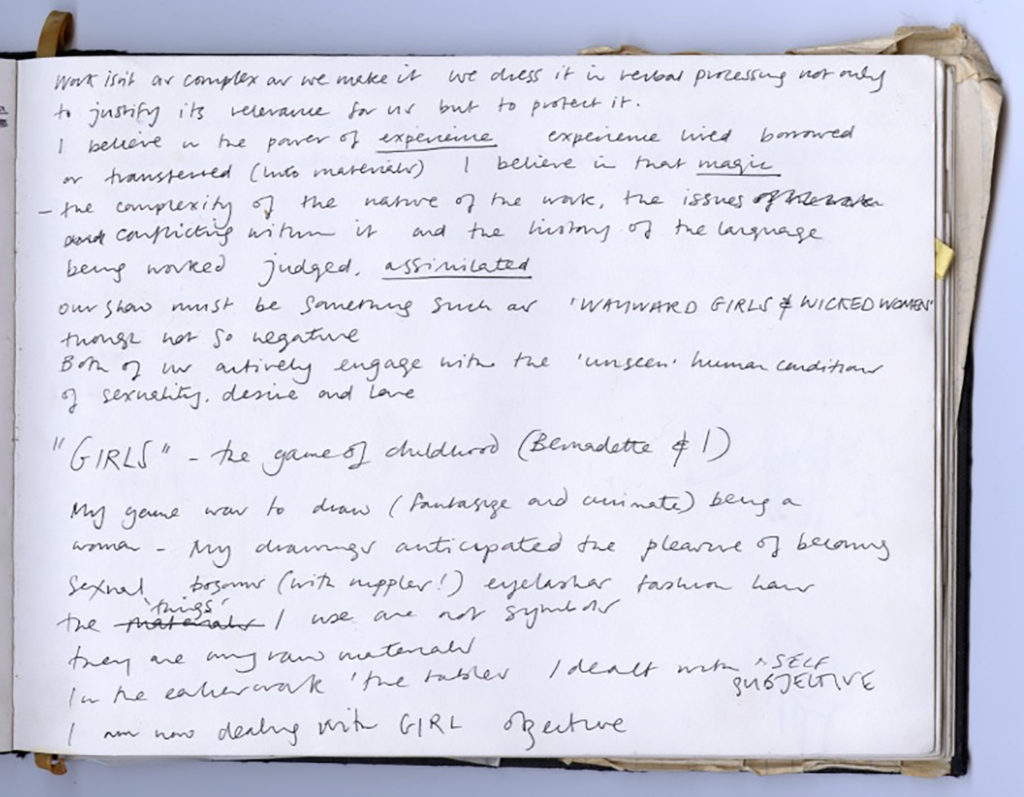 Work isnt as complex as we make it we dress it in verbal processing not only
to justify its relevance for us but to protect it.
I believe in the power of experience experience lived borrowed
or transferred (into materials) I believe in that magic
- the complexity of the nature of the work, the issues of the work
and conflicting within it and the history of the language
being worked judged, assimilated
our show must be something such as 'WAYWARD GIRLS & WICKED WOMEN'
though not so negative
Both of us actively engage with the 'unseen' human conditions
of sexuality, desire and love
"GIRLS" - the game of childhood (Bernadette & I)
My game was to draw (fantasize and animate) being a
woman - My drawings anticipated the pleasure of becoming
sexual bosoms (with nipples!) eyelashes fashion hair
'things'
the materials I use are not symbols
they are my raw materials
In the earlier work 'the tables I dealt with ^ SELF
SUBJECTIVE
I am now dealing with GIRL objective